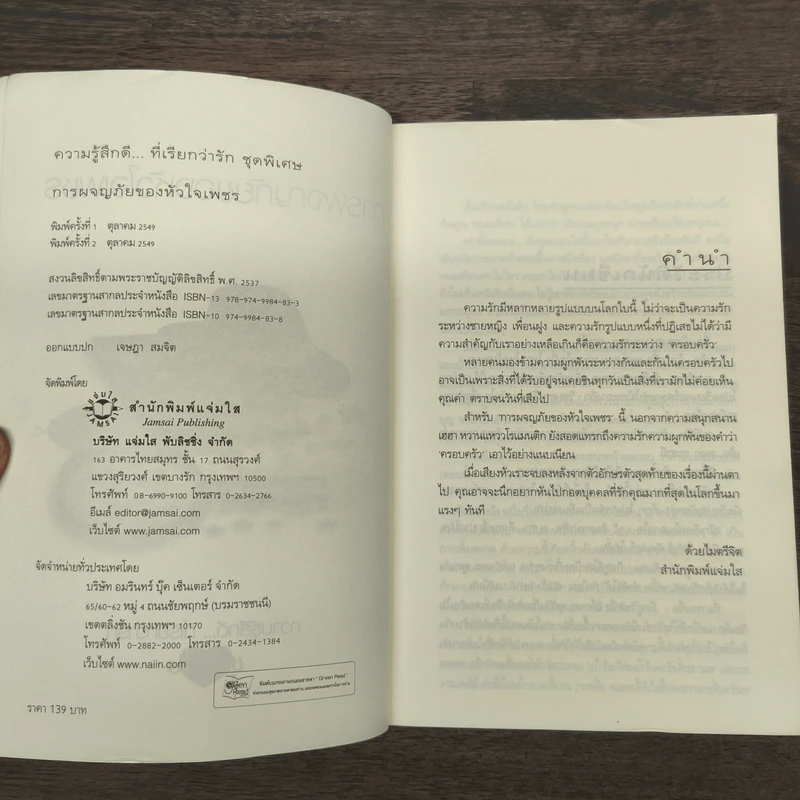 ความรู้สึกดี... ที่เรียกว่ารัก ชุดพิเศษ
การผจญภัยของหัวใจเพชร
พิมพ์ครั้งที่ 1 ตุลาคม 2549
พิมพ์ครั้งที่ 2 ตุลาคม 2549
สงวนลิขสิทธิ์ตามพระราชบัญญัติลิขสิทธิ์ พ.ศ. 2537
เลขมาตรฐานสากลประจำหนังสือ ISBN-13 978-974-9984-83-3
เลขมาตรฐานสากลประจำหนังสือ ISBN-10 974-9984-83-8
ออกแบบปก เจษฎา สมจิต
จัดพิมพ์โดย
แจ่มใส
JAMSAI
สำนักพิมพ์แจ่มใส
Jamsai Publishing
บริษัท แจ่มใส พับลิชชิ่ง จำกัด
163 อาคารไทยสมุทร ชั้น 17 ถนนสุรวงศ์
แขวงสุริยวงศ์ เขตบางรัก กรุงเทพฯ 10500
โทรศัพท์ 08-6990-9100 โทรสาร 0-2634-2766
อีเมล์ editor@jamsai.com
เว็บไซต์ www.jamsai.com
จัดจำหน่ายทั่วประเทศโดย
บริษัท อมรินทร์ บุ๊ค เซ็นเตอร์ จำกัด
65/60-62 หมู่ 4 ถนนชัยพฤกษ์ (บรมราชชนนี)
เขตตลิ่งชัน กรุงเทพฯ 10170
โทรศัพท์ 0-2882-2000 โทรสาร 0-2434-1384
เว็บไซต์ www.naiin.com
Green Read
พิมพ์บนกระดาษถนอมสายตา "Green Read"
ราคา 139 บาท
คำนำ
ความรักมีหลากหลายรูปแบบบนโลกใบนี้ ไม่ว่าจะเป็นความรัก
ระหว่างชายหญิง เพื่อนฝูง และความรักรูปแบบหนึ่งที่ปฏิเสธไม่ได้ว่ามี
ความสำคัญกับเราอย่างเหลือเกินก็คือความรักระหว่าง 'ครอบครัว'
หลายคนมองข้ามความผูกพันระหว่างกันและกันในครอบครัวไป
อาจเป็นเพราะสิ่งที่ได้รับอยู่จนเคยชินทุกวันเป็นสิ่งที่เรามักไม่ค่อยเห็น
คุณค่า ตราบจนวันที่เสียไป
สำหรับ 'การผจญภัยของหัวใจเพชร' นี้ นอกจากความสนุกสนาน
เฮฮา หวานแหววโรแมนติก ยังสอดแทรกถึงความรักความผูกพันของคำว่า
'ครอบครัว' เอาไว้อย่างแนบเนียน
เมื่อเสียงหัวเราะจบลงหลังจากตัวอักษรตัวสุดท้ายของเรื่องนี้ผ่านตา
ไป คุณอาจจะนึกอยากหันไปกอดบุคคลที่รักคุณมากที่สุดในโลกขึ้นมา
แรงๆ ทันที
ด้วยไมตรีจิต
สำนักพิมพ์แจ่มใส